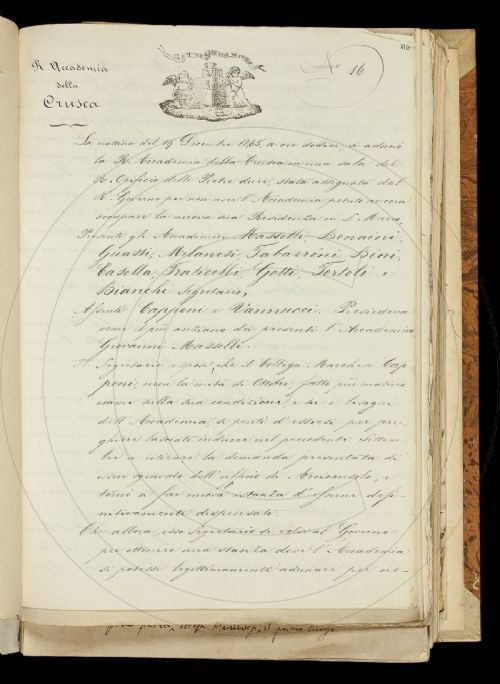 116
R. Accademia
della
Crusca
N.° 16
La mattina del 19 Dicembre 1865, a ore dodici, si adunò
la R. Accademia della Crusca in una sala del
R. Opificio delle Pietre dure, stata assegnata dal
R. Governo per non aver l'Accademia potuto ancora
occupare la nuova sua Residenza in S. Marco,
Presenti gli Accademici Masselli, Bonaini,
Guasti, Milanesi, Tabarrini, Bini,
Casella, Fraticelli, Gotti, Tortoli e
Bianchi Segretario;
Assenti Capponi e Vannucci. Presiedeva
come il più anziano dei presenti l'Accademico
Giovanni Masselli.
Il Segretario espose, che il Collega Marchese Cap-
poni, circa la metà di Ottobre, fatto più maturo
esame della sua condizione, e de' bisogni
dell'Accademia, si pentì d'essersi per pre-
ghiere lasciato indurre nel precedente Settem-
bre a ritirare la domanda presentata di
essere sgravato dell'ufficio di Arciconsolo, e
tornò a far nuova istanza d'esserne defi-
nitivamente dispensato.
Che allora, esso Segretario si volse al Governo
per ottenere una stanza dove l'Accademia
si potesse legittimamente adunare per ve-